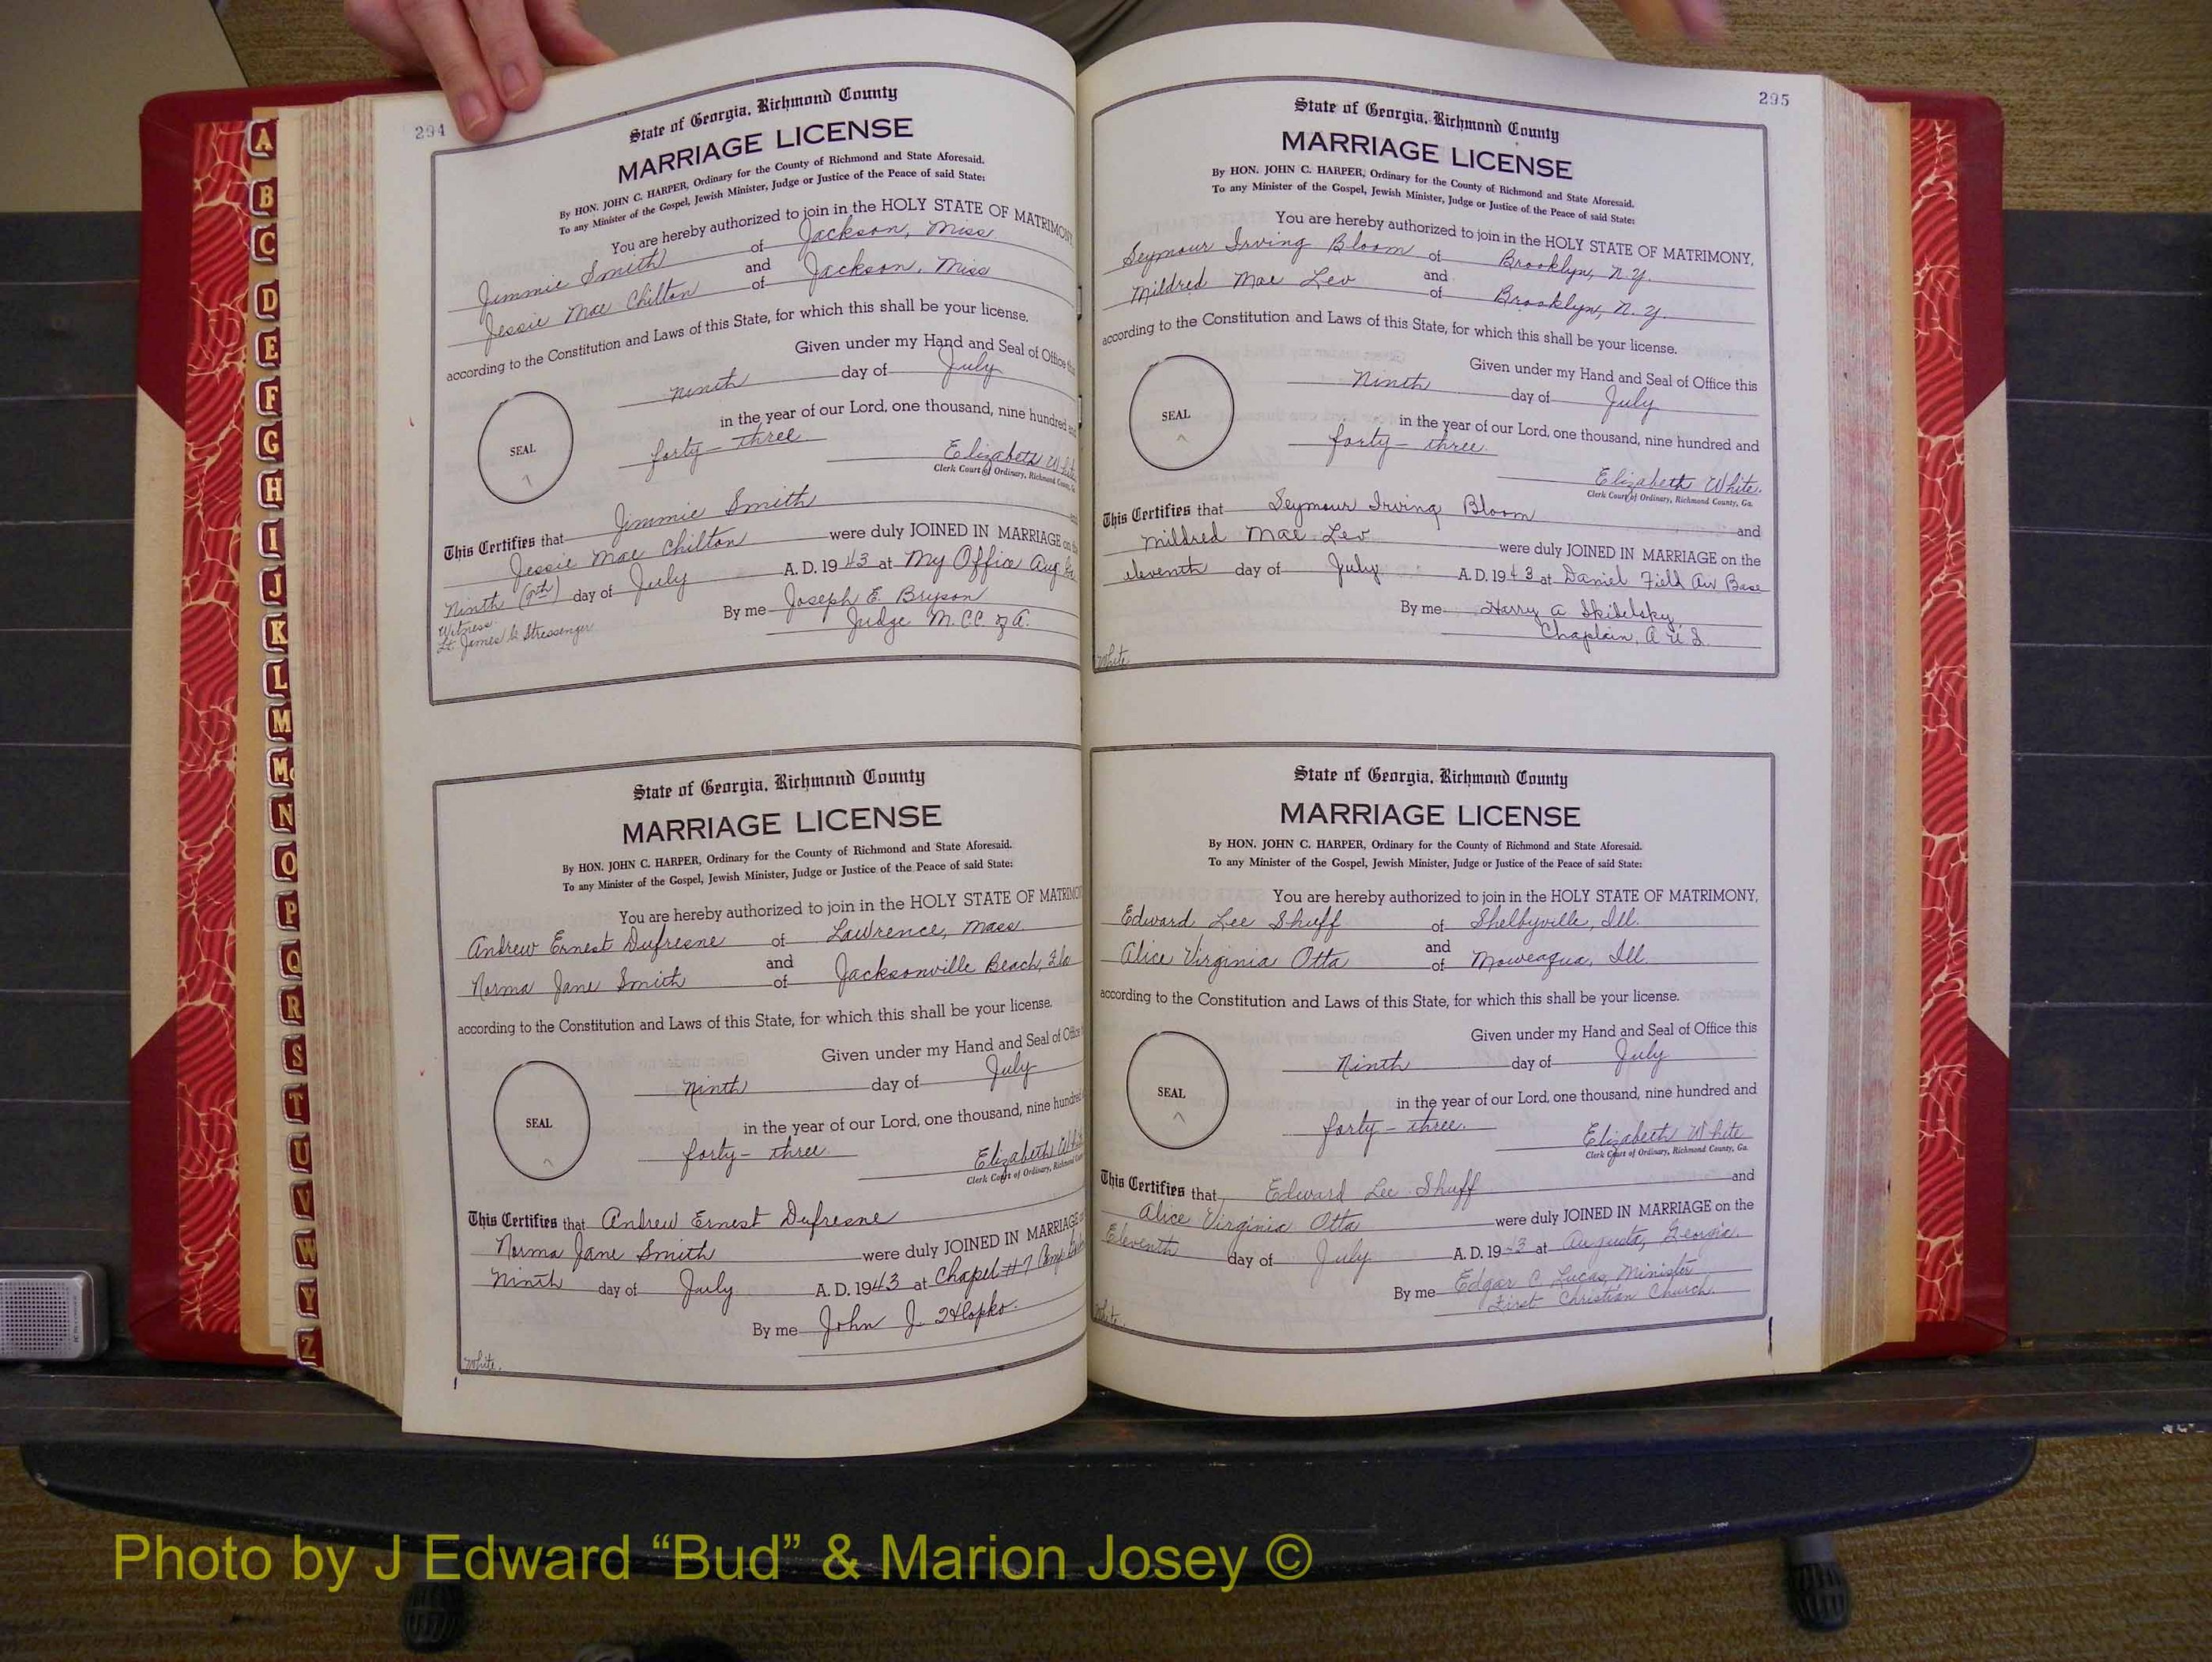 294
State of Georgia, Richmond County
MARRIAGE LICENSE
By HON. JOHN C. HARPER, Ordinary for the County of Richmond and State Aforesaid.
To any Minister of the Gospel, Jewish Minister, Judge or Justice of the Peace of said State:
You are hereby authorized to join in the HOLY STATE OF MATRIMONY,
Jimmie Smith of Jackson, Miss.
and
Jessie Mae Chilton of Jackson, Miss
according to the Constitution and Laws of this State, for which this shall be your license.
Given under my Hand and Seal of Office this
ninth day of July
in the year of our Lord, one thousand, nine hundred and
forty-three
Elizabeth White
Clerk Court of Ordinary, Richmond County, Ga
SEAL
This Certifies that Jimmie Smith
Jessie Mae Chilton were duly JOINED IN MARRIAGE on the
Ninth (9th) day of July A. D. 1943 at My Office
Witness
Lt. James
By me Joseph E. Bryson
Judge M.C.C. of A.
State of Georgia, Richmond County
MARRIAGE LICENSE
By HON. JOHN C. HARPER, Ordinary for the County of Richmond and State Aforesaid.
To any Minister of the Gospel, Jewish Minister, Judge or Justice of the Peace of said State:
You are hereby authorized to join in the HOLY STATE OF MATRIMO
Andrew Ernest Dufresne of Lawrence, Mass.
and
Norma Jane Smith of Jacksonville Beach, Fla
according to the Constitution and Laws of this State, for which this shall be your license.
Given under my Hand and Seal of Office
ninth day of July
in the year of our Lord, one thousand, nine hundred
forty-three.
Elizabeth
Clerk Court of Ordinary, Richmond
SEAL
This Certifies that Andrew Ernest Dufresne
Norma Jane Smith were duly JOINED IN MARRIAGE
Ninth day of July A. D. 1943 at Chapel #7 Camp
By me John J.
White.
295
State of Georgia, Richmond County
MARRIAGE LICENSE
By HON. JOHN C. HARPER, Ordinary for the County of Richmond and State Aforesaid.
To any Minister of the Gospel, Jewish Minister, Judge or Justice of the Peace of said State:
You are hereby authorized to join in the HOLY STATE OF MATRIMONY,
Seymour Irving Bloom of Brooklyn, N.Y.
and
Mildred Mae Lev of Brooklyn, N.Y.
according to the Constitution and Laws of this State, for which this shall be your license.
Given under my Hand and Seal of Office this
Ninth day of July
in the year of our Lord, one thousand, nine hundred and
forty-three.
Elizabeth White.
Clerk Court of Ordinary, Richmond County, Ga.
SEAL
This Certifies that Seymour Irving Bloom and
Mildred Mae Lev were duly JOINED IN MARRIAGE on the
eleventh day of July A. D. 1943 at Daniel Field Air Base
By me Harry A Skidelsky
Chaplain, A U S.
White.
State of Georgia, Richmond County
MARRIAGE LICENSE
By HON. JOHN C. HARPER, Ordinary for the County of Richmond and State Aforesaid.
To any Minister of the Gospel, Jewish Minister, Judge or Justice of the Peace of said State:
You are hereby authorized to join in the HOLY STATE OF MATRIMONY,
Edward Lee Shuff of Shelbyville, Ill.
and
Alice Virginia Otta of Moweaqua, Ill.
according to the Constitution and Laws of this State, for which this shall be your license.
Given under my Hand and Seal of Office this
Ninth day of July
in the year of our Lord, one thousand, nine hundred and
forty-three.
Elizabeth White
Clerk Court of Ordinary, Richmond County, Ga.
SEAL
This Certifies that Edward Lee Shuff and
Alice Virginia Otta were duly JOINED IN MARRIAGE on the
Eleventh day of July A. D. 1943 at Augusta, Georgia.
By me Edgar C. Lucas, Minister
First Christian Church.
White.
A
B
C
D
E
F
G
H
I
J
K
L
M
Mc
N
O
P
Q
R
S
T
U
V
W
Y
Z
Photo by J Edward “Bud” & Marion Josey ©